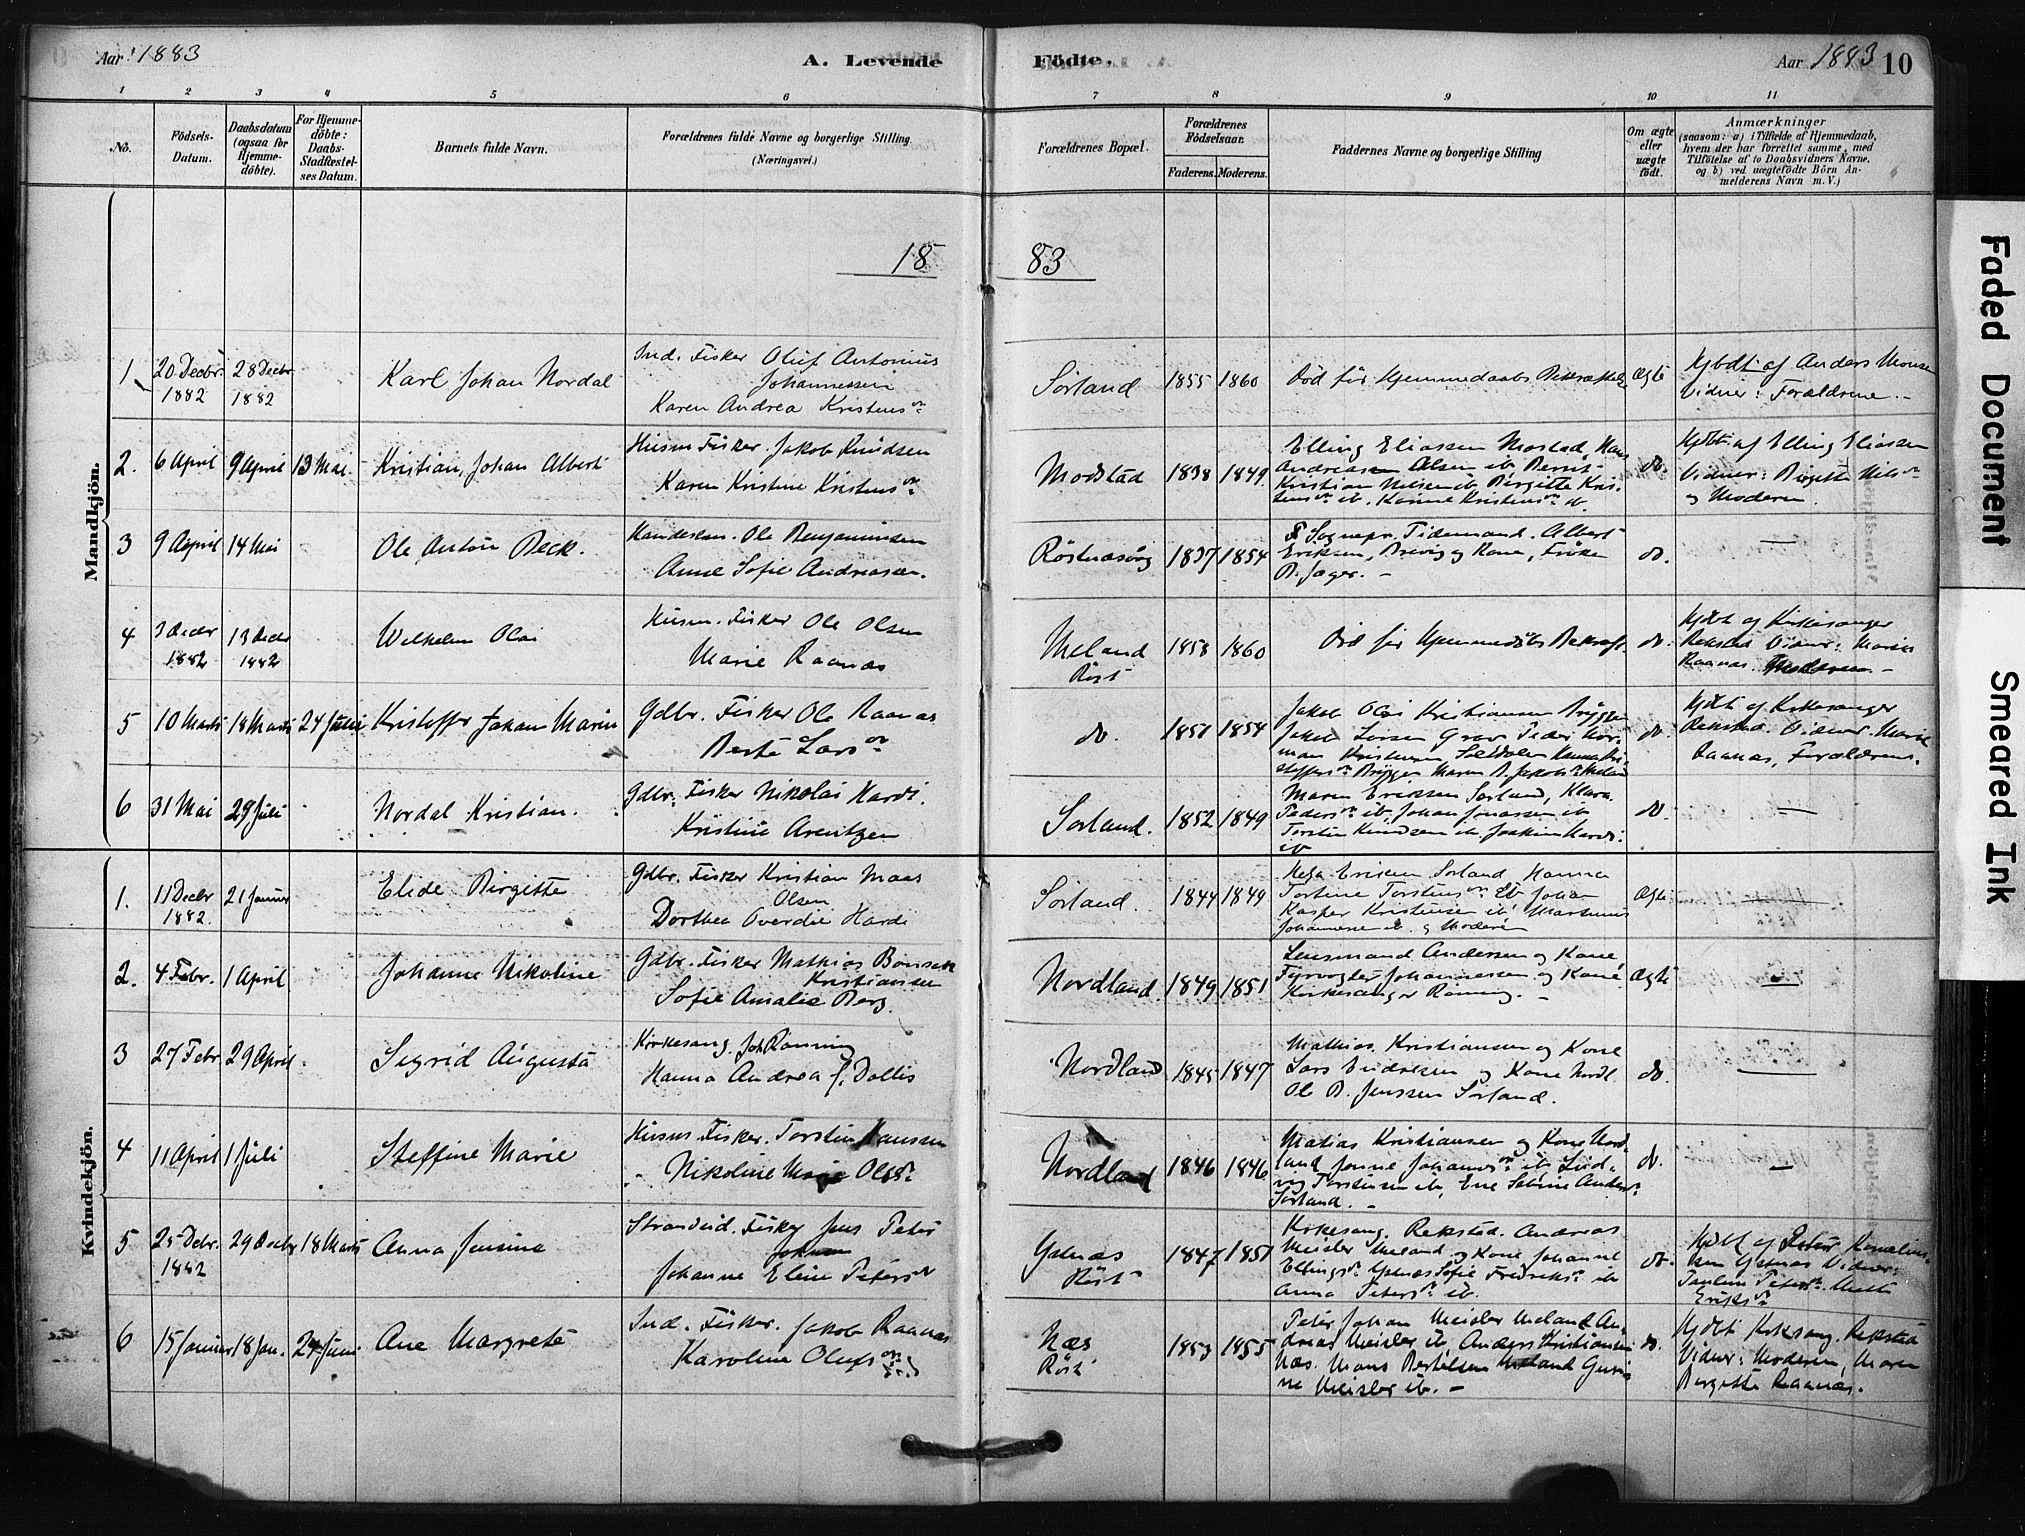 Aar 1883
A. Levende
Födte.
Aar 1883
10
1 2 3 4 5 6 7 8 9 10 11
No.
Födsels-
Datum.
Daabsdatum
(ogsaa for
Hjemme-
döbte).
For Hjemme-
döbte:
Daabs-
Stadfæstel-
ses Datum.
Barnets fulde Navn.
Forældrenes fulde Navne og borgerlige Stilling
(Næringsvei.)
Forældrenes Bopæl.
Forældrenes
Födselsaar.
Faderens. Moderens.
Faddernes Navne og borgerlige Stilling
Om ægte
eller
uægte
födt.
Anmærkninger
(saasom: a) i Tilfælde af Hjemmedaab,
hvem der har forrettet samme, med
Tilföielse af to Daabsvidners Navne,
og b) ved uægtefödte Börn An-
melderens Navn m. V.)
18 83
Mandkjön.
1
20 Decbr.
1882
28 Decbr
1882
Karl Johan Nordal
Ind. Fisker Oluf Antonius
Johannessen
Karen Andrea Kristens
Sörland
1855 1860
Död för Hjemmedaabs
Ægte
Hjbdt af Anders Monsen
Vidner: Forældrene. -
2.
6 April 9 April 13 Mai
Kristian Johan Albert
Husm. Fisker. Jakob Knudsen
Karen Kristine Kristens
Mostad
1838 1849
Elling Eliassen Mostad, Hans
Andreas Olsen ib. Bernt
Kristian Nielsen ib. Birgitte Kris-
tens ib. Kristens ib.
do.
Hjdbt af Elling Eliassen
Vidner: Birgitte Nils
og Moderen
3
9 April 14 Mai
Ole Anton Beck.
Handelsm. Ole Benjaminsen
Anne Sofie Andreasen.
Röstnæsvåg
1837 1854
Sognepr. Tidemand. Albert
Eriksen, Brevig og Kone, Frøken
B. Jæger. -
do.
4
3 Decbr
1882
13 Decbr
1882
Wilhelm Olai
Husm. Fisker Ole Olsen
Marie Raanas
Meland
Röst
1858 1860
Död för Hjemmedøbts Bekræft.
do.
Hjdbt af Kirkesanger
Rekstad Vidner: Maren
Raanas.
5
10 Marts 18 Marts 24 Juni
Kristoffer Johan Marin
Gdbr. Fisker Ole Raanas
Berte Lars
do.
1851 1854
Jakob Olai Kristiansen Brygge
do.
Hjdbt af Kirkesanger
Rekstad. Vidner: Marie
Raanas, Forældrene.
6
31 Mai 29 Juli
Nordal Kristian.
Gdbr. Fisker Nikolai Hardi.
Kristine Arentzen
Sörland.
1852 1849
Maren Eriksen Sørland, Klara
Peders ib. Johan Jonassen ib
Torstein Knudsen ib. Joakim Hardi
ib
do.
Kvindekjön.
1.
11 Decbr
1882.
21 Januar
Elide Birgitte
Gdbr. Fisker Kristian Maas
Olsen
Dorthea Overdie Hardi
Sörland.
1844 1849
Eriksen Sørland, Hanna
Tortine Torstens ib. Johan
Kasper Kristensen ib. Martinus
Johannesen ib. og Moderen
Ægte
2.
4 Febr. 1 April
Johanne Nikoline
Gdbr. Fisker Mathias Bonsak
Kristiansen
Sofie Amalie Berg.
Nordland.
1849 1851
Lensmand Andersen og Kone,
Fyrvogter Johannessen og Kone
Kirkesanger Rönning. -
Ægte
3
27 Febr 29 April
Sigrid Augusta
Kirkesang. Joh Rönning
Hanna Andrea J. Dallis
Nordland
1845 1847
Mathias. Kristiansen og Kone
Lars og Kone Nordl.
Ole B. Jenssen Sörland.
do.
4
11 April 1 Juli
Steffine Marie
Husm. Fisker. Torstein Hanssen
Nikoline Marie Ols
Nordland
1846 1846
Matias Kristiansen og Kone Nord-
land, Johans ib. Lud-
vig Torstensen ib, Ene Sabine Anders
Sörland. -
do.
5
25 Debr.
1882
29 Decbr 18 Marts
Anna Jensine
Strandsid. Fisker Jens Peter
Johanne Eline Peters
Ystnæs
Röst
1847 1851
Kirkesang. Rekstad. Andreas
Meisler Meland og Kone Johanne
Ellings Ystnæs Sofie Fredriks ib
Anna Peters ib.
do.
Hjdbt af Peter Kornelius-
sen Ystnæs Vidner:
Pauline Peters. Mette
Eriks
6
15 Januar 18 Jan. 24 Juni
Ane Margrete
Ind. Fisker. Jakob Raanas
Karoline Olufs
Næs
Röst
1853 1855
Peter Johan Meisler Meland An-
dreas Meisler ib. Anders Kristiansen
Næs. Mons Bertelsen Meland Guri-
ne Meisler ib. -
do.
Hjdbt Kirkesang. Rekstad
Vidner: Moderen, Maren
Bergitte Raanas.
Faded Document
Smeared Ink